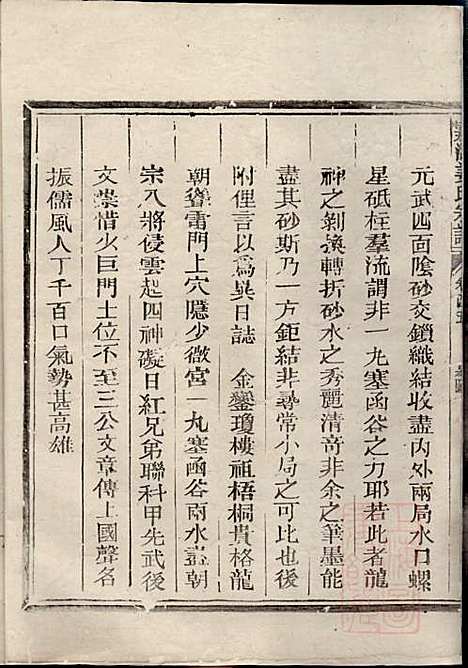 元武四面陰砂交鎖織結收盡內外兩局水口螺
星砥柱羣流謂非一九塞函谷之力耶若此者龍
神之剝換轉折砂水之秀麗清奇非余之筆墨能
盡其砂斯乃一方鉅結非尋常小局之可比也後
附俚言以爲異日誌 金鑾瓊樓祖梧桐貴格龍
朝聳雷門上穴隱少微宮一九塞函谷兩水盡朝
宗八將侵雲起四神礙日紅兄弟聯科甲先武後
文崇惜少巨門土位不至三公文章傳上國聲名
振儒風人丁千百口氣勢甚高雄